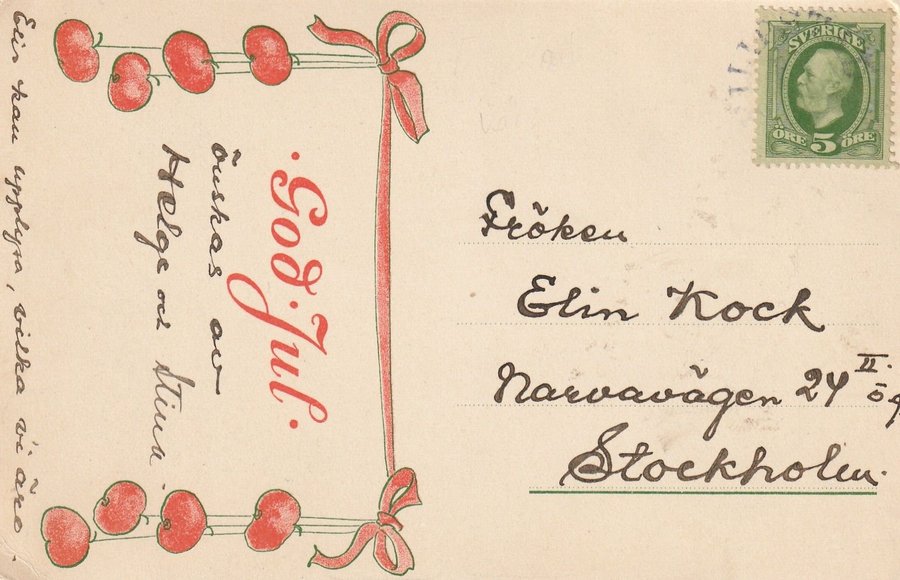 SVERIGE
ÖRE 5 ÖRE
Fröken
Elin Kock
Narvavägen 24 II. ög
Stockholm.
·God·Jul·
önskas av
Helge och Stina.
kan upplysa, vilka vi äro.